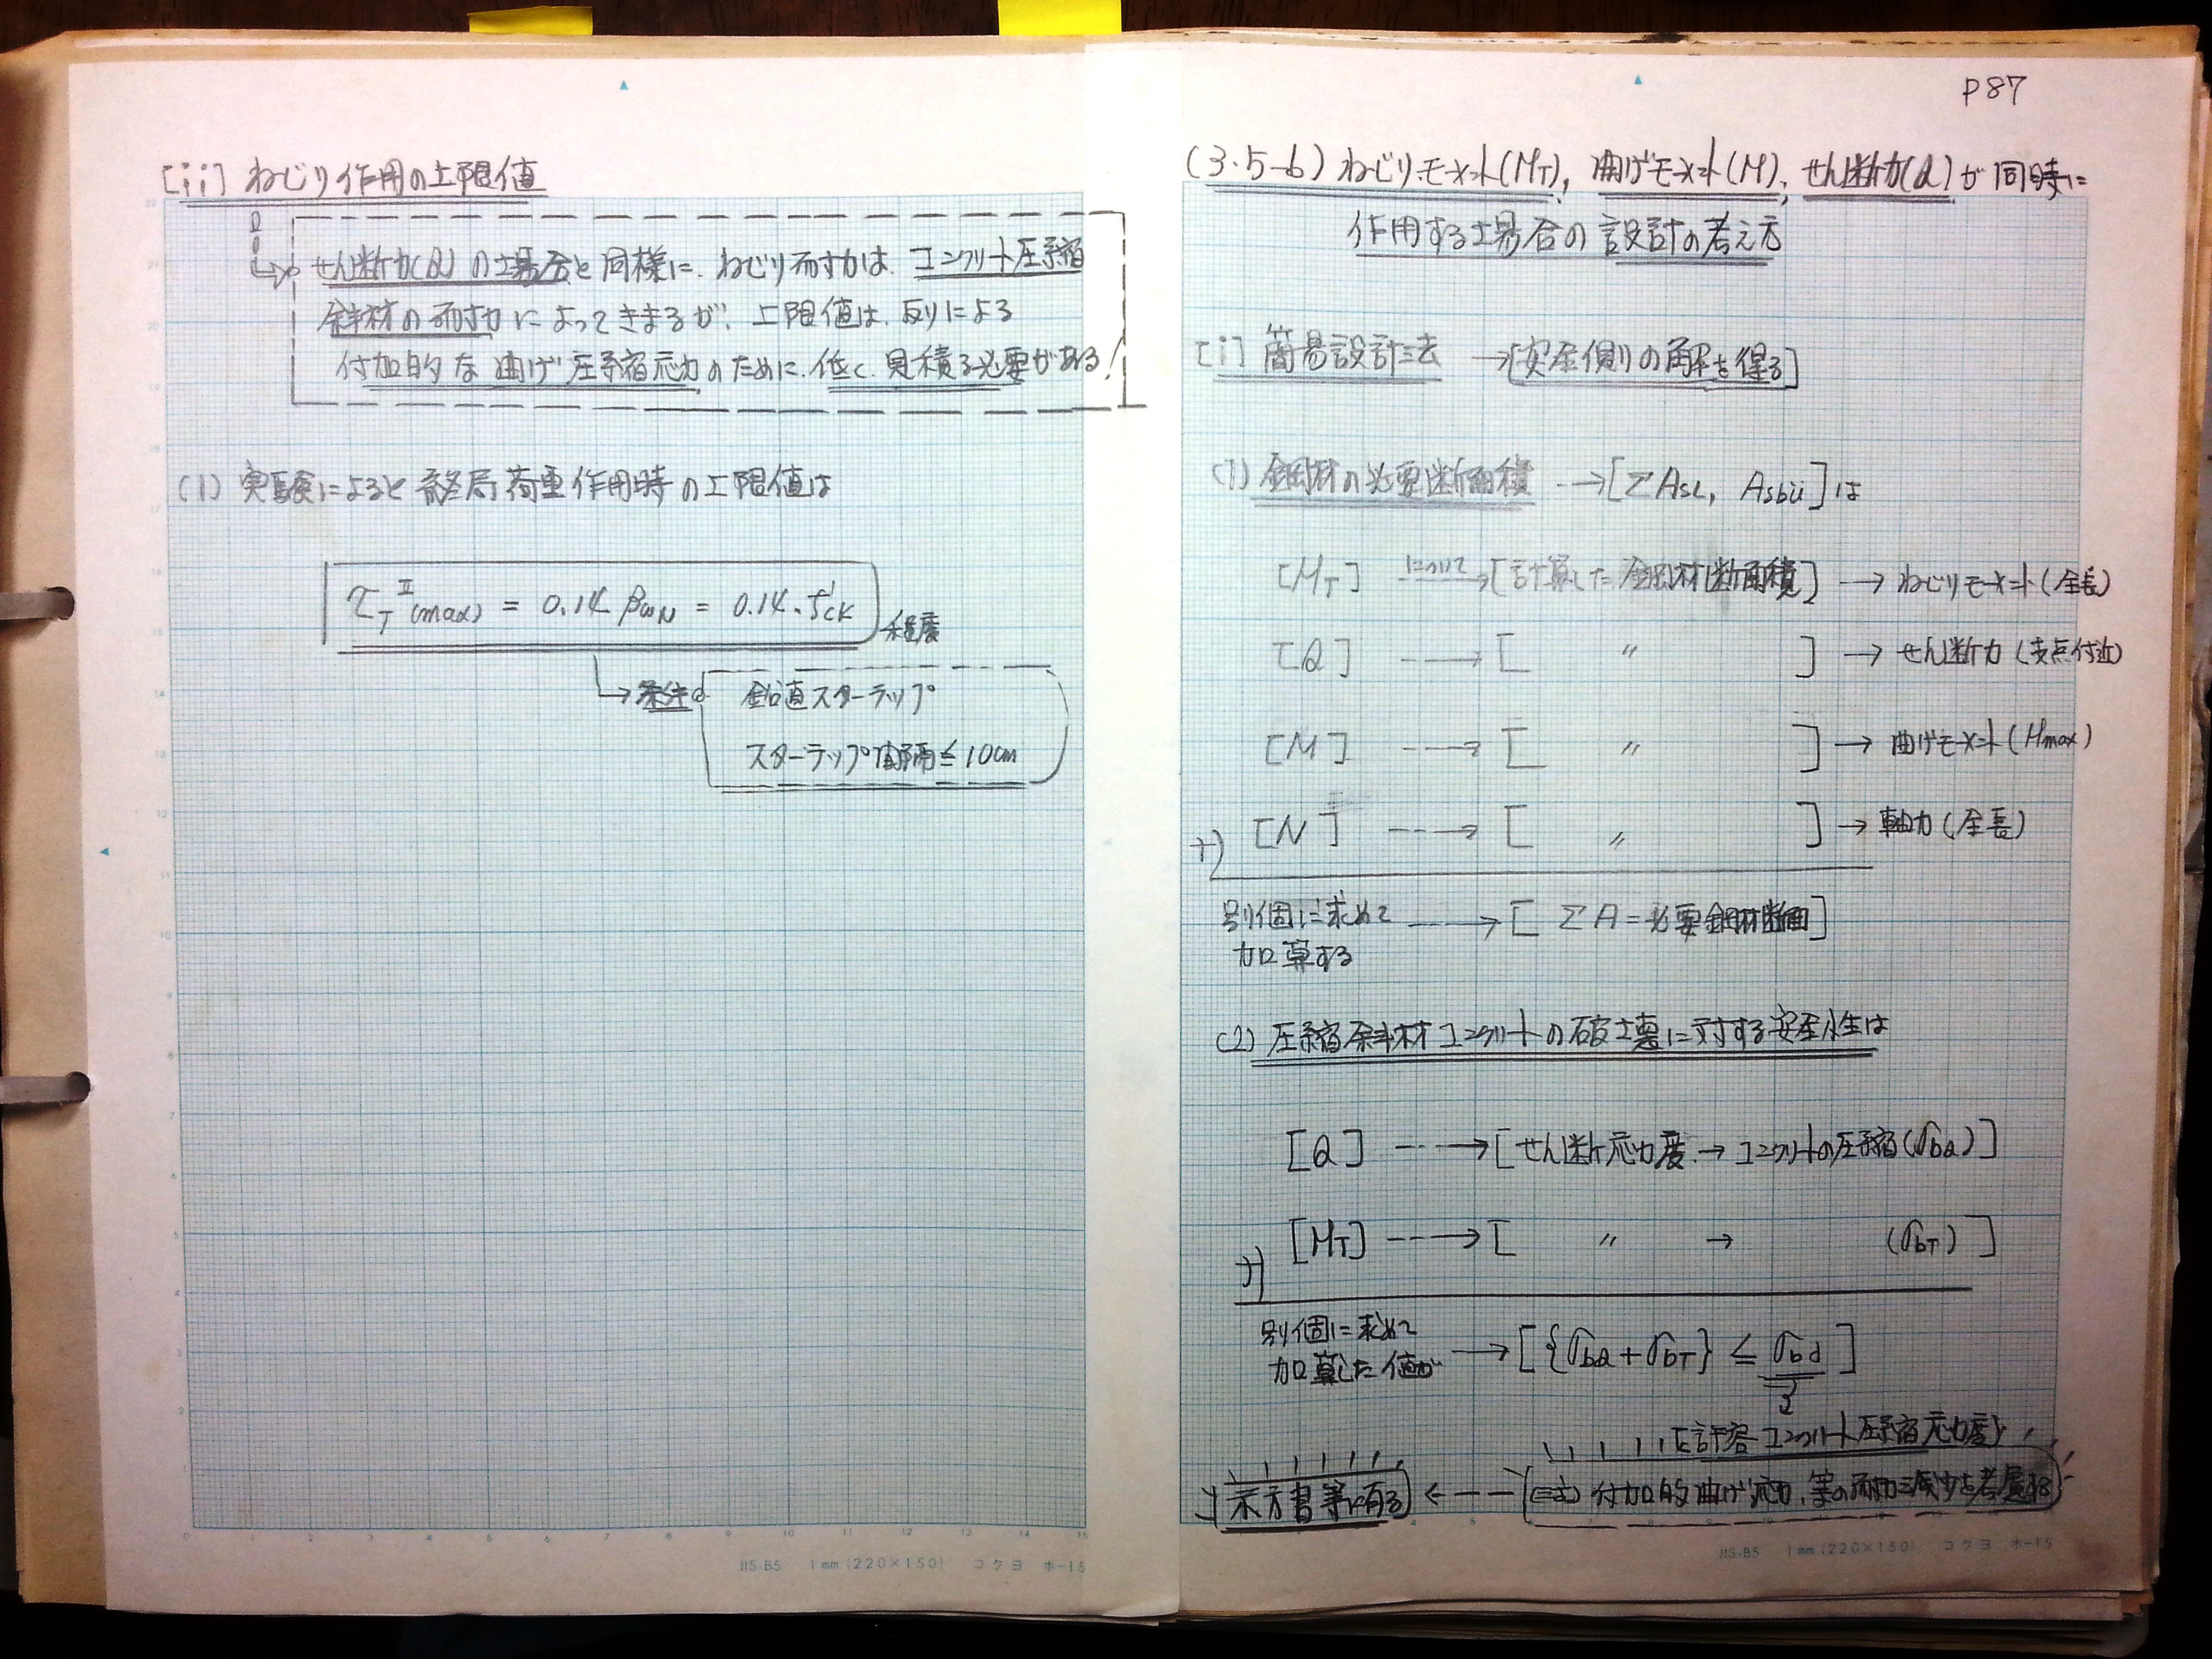 [ii] ねじり作用の上限値
せん断力(Q)の場合と同様に、ねじり耐力は、コンクリート圧縮
斜材の耐力によってきまるが、上限値は、反りによる
付加的な曲げ圧縮応力のために、低く、見積る必要がある!
(1) 実験によると終局荷重作用時の上限値は
τ_T^Ⅱ(max) = 0.14 β_WN = 0.14・f'ck 程度
→条件 鉛直スターラップ
スターラップ間隔≦10cm
JIS-B5 1mm(220×150) コクヨ ホ-15
P87
(3・5-6) ねじりモーメント(M_T), 曲げモーメント(M), せん断力(Q)が同時に
作用する場合の設計の考え方
[i] 簡易設計法 →[安全側りの解を得る]
(1) 鋼材の必要断面積 --→[ΣAsL, Asbü]は
[M_T] について→[計算した鋼材断面積] → ねじりモーメント(全長)
[Q] ---→ [ 〃 ] → せん断力(支点付近)
[M] ---→ [ 〃 ] → 曲げモーメント(Mmax)
+) [N] ---→ [ 〃 ] → 軸力(全長)
別個に求めて ---→ [ΣA=必要鋼材断面]
加算する
(2) 圧縮斜材コンクリートの破壊に対する安全性は
[Q] ---→ [せん断応力度 → コンクリートの圧縮(σbQ)]
+) [M_T] ---→ [ 〃 → (σbT)]
別個に求めて
加算した値が → [{σbQ+σbT} ≦ σbd]
許容コンクリート圧縮応力度
示方書等に有る ←-- 付加的曲げ応力、等の耐力減少を考慮
JIS-B5 1mm(220×150) コクヨ ホ-15